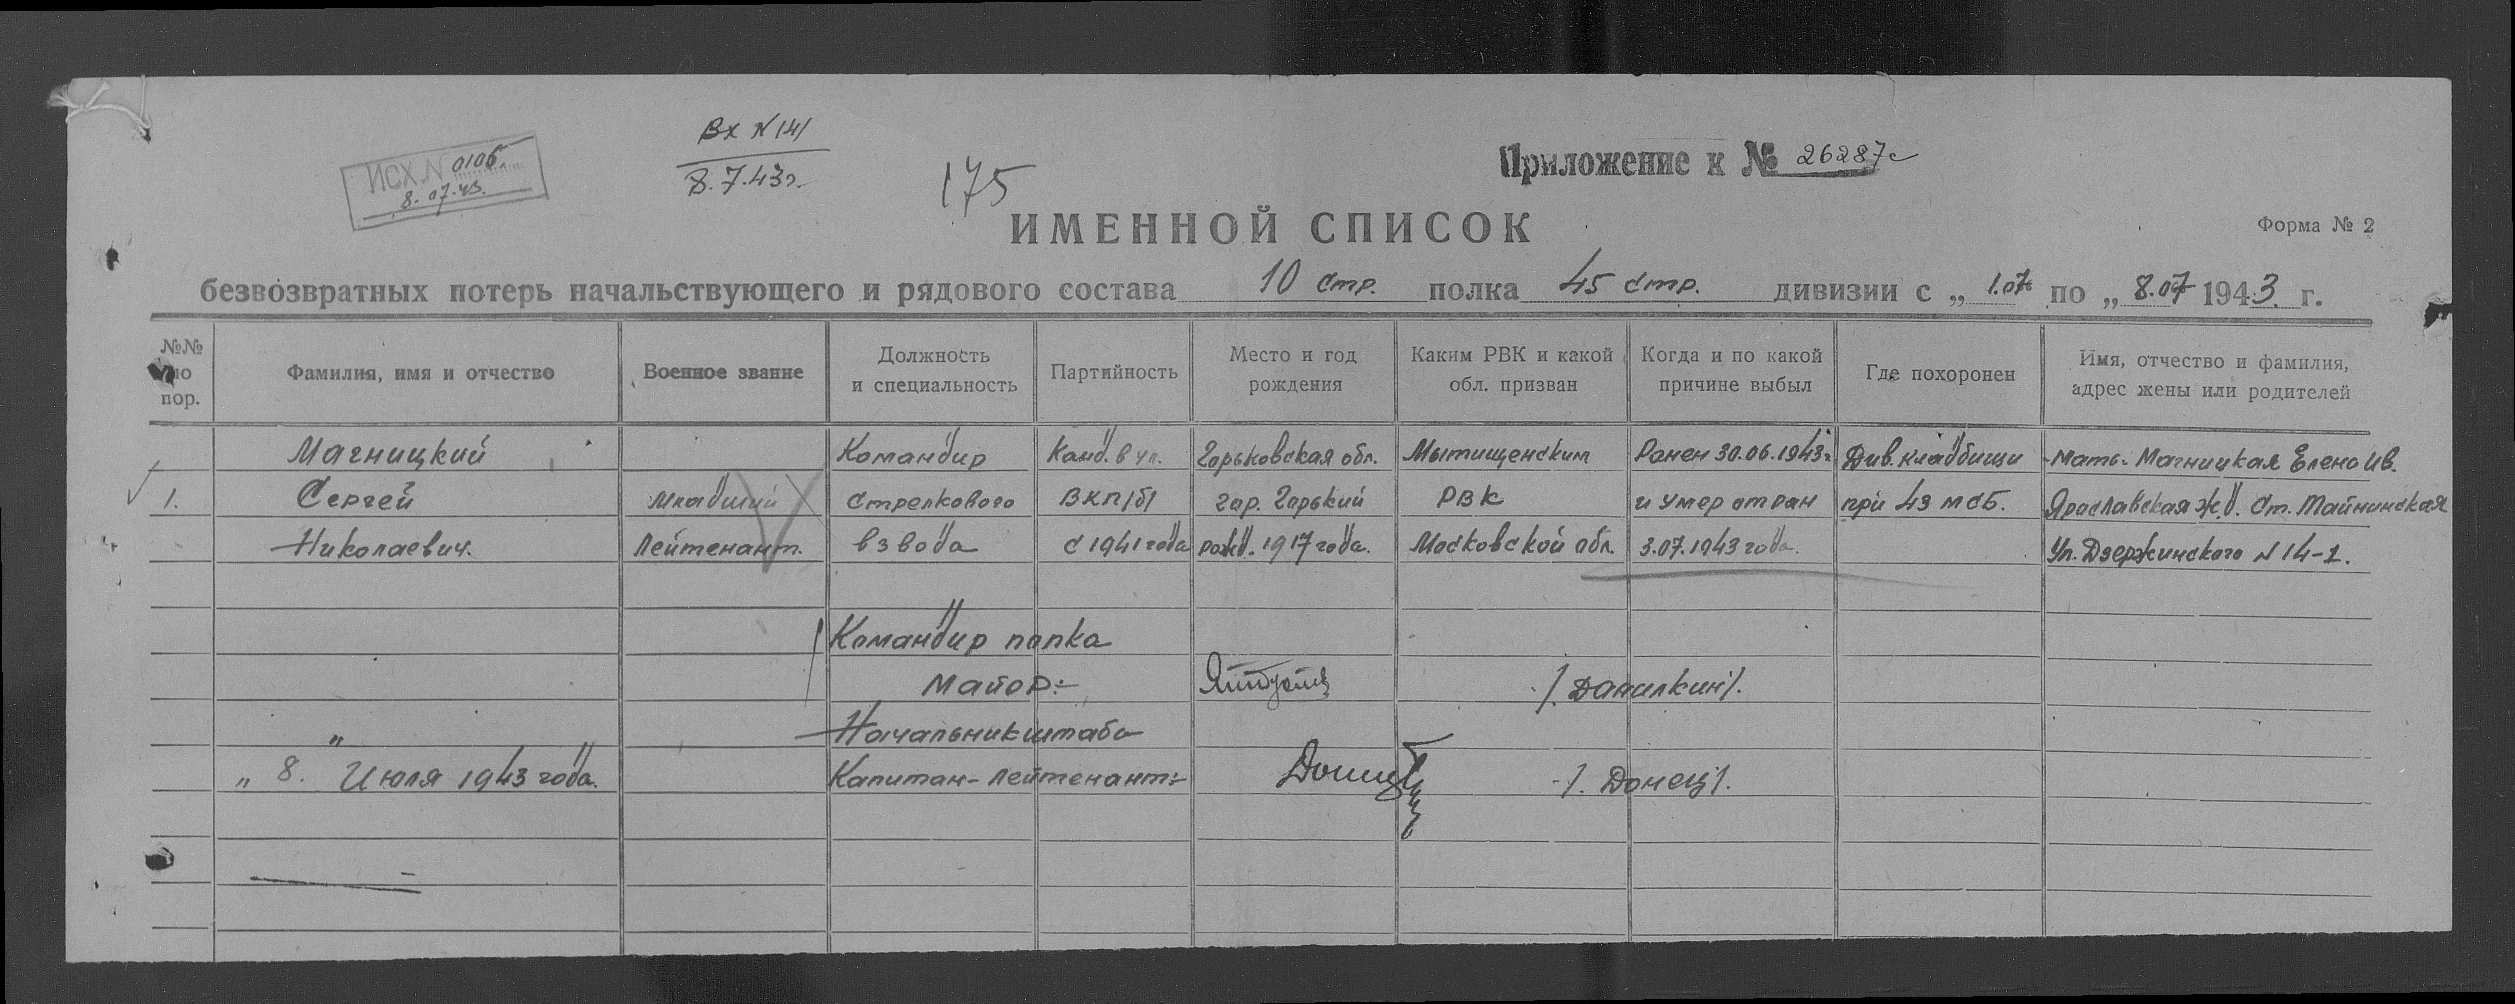 ИСХ. N 0106
8.07.43.
Вх N 141
8.7.43г.
175
Приложение к № 26287с
ИМЕННОЙ СПИСОК
Форма № 2
безвозвратных потерь начальствующего и рядового состава 10 стр. полка 45 стр. дивизии с „ 1.07 по „ 8.07 1943 г.
№№ по пор.
Фамилия, имя и отчество
Военное звание
Должность и специальность
Партийность
Место и год рождения
Каким РВК и какой обл. призван
Когда и по какой причине выбыл
Где похоронен
Имя, отчество и фамилия, адрес жены или родителей
Магницкий Командир Канд. в чл. Горьковская обл. Мытищенским Ранен 30.06.1943г Див. кладбищи Мать: Магницкая Елена Ив.
1. Сергей Младший Стрелкового ВКП/б/ гор. Горький РВК и умер от ран при 43 мсб. Ярославская ж.д. Ст. Тайнинская
Николаевич. Лейтенант. взвода с 1941 года рожд. 1917 года. Московской обл. 3.07.1943 года. Ул. Дзержинского N 14-1.
Командир полка
Майор:- /Данилкин/.
Начальник штаба
„ 8. „ Июля 1943 года. Капитан-лейтенант:- /Донец/.